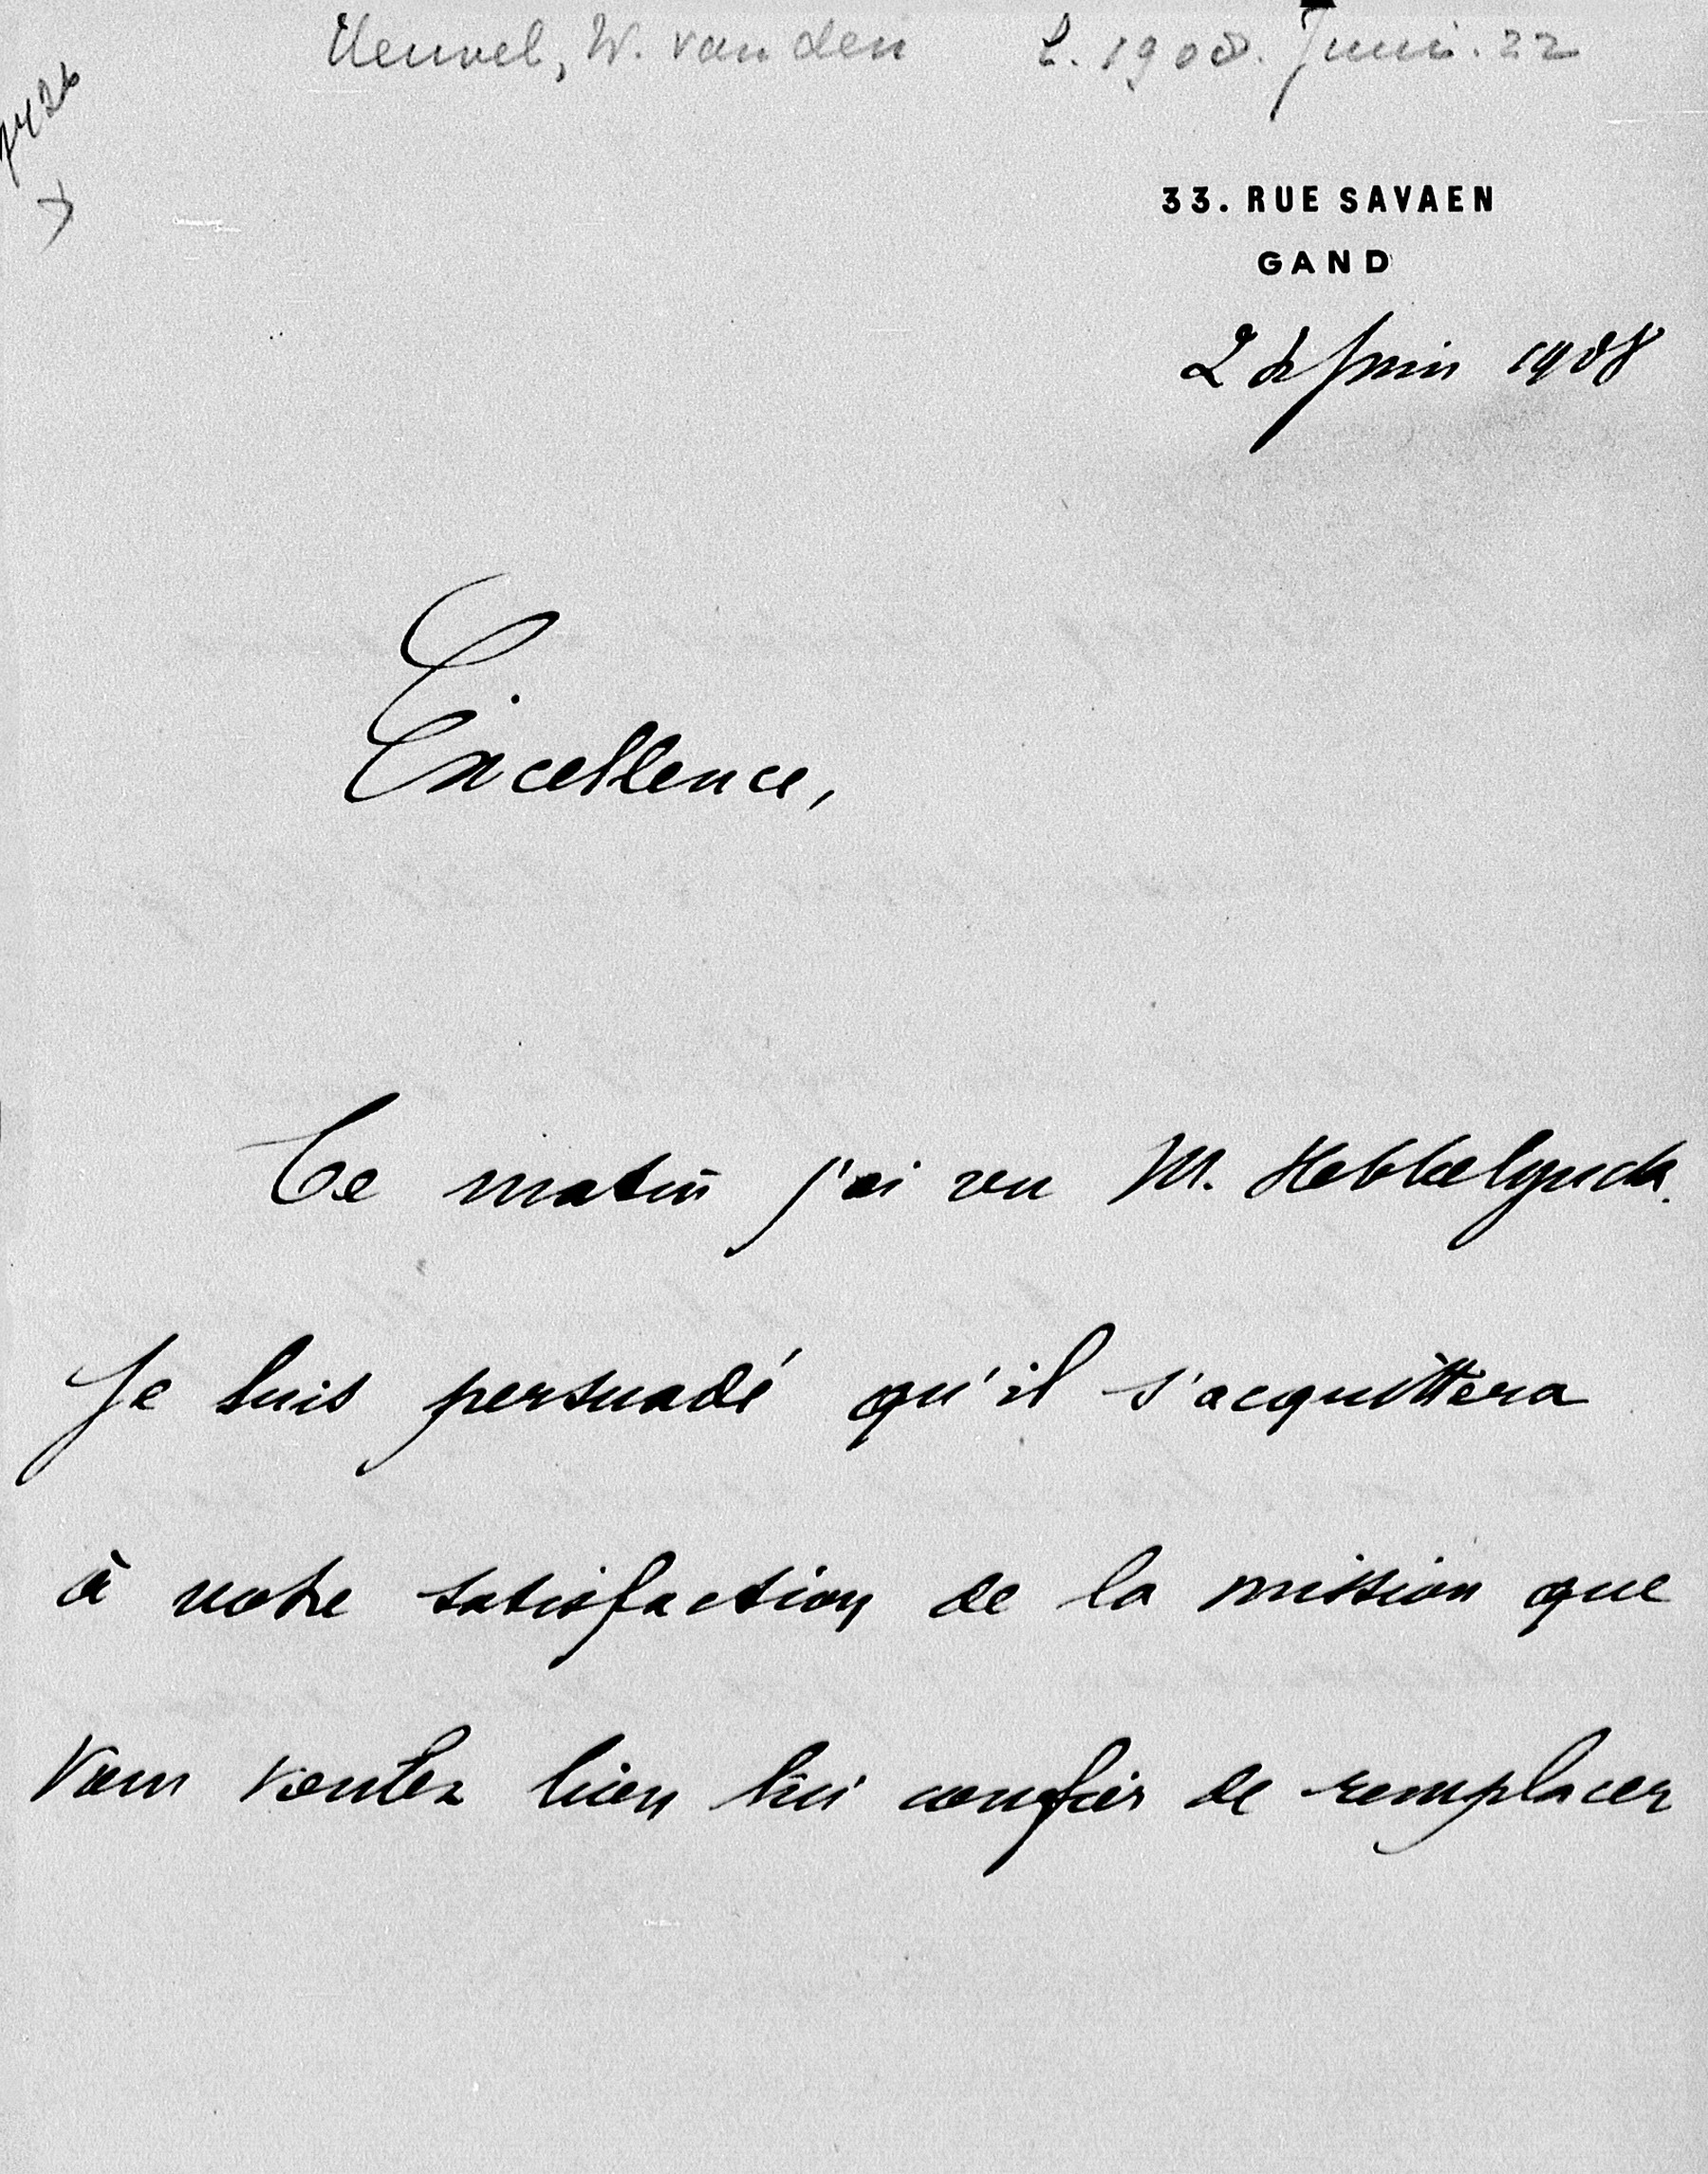 Heuvel, W. van den L. 1908. Juni. 22
33. RUE SAVAEN
GAND
Juin 1908
Excellence,
Ce matin j'ai vu M. Hebbelynck.
Je suis persuadé qu'il s'acquittera
à votre satisfaction de la mission que
vous voulez bien lui confier de remplacer